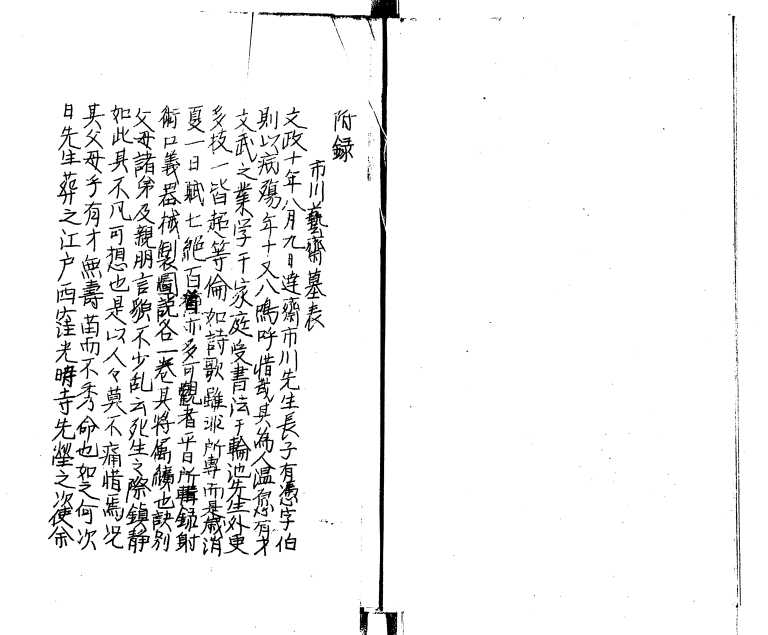 附録
市川藝齋墓表
文政十年八月九日達齋市川先生長子有憑字伯
則以病殤年十又八嗚呼惜哉其為人温慤有才
文武之業学于家庭受書法于輪池先生外更
多技一皆超等倫如詩歌雖非所專而是歳消
夏一日賦七絶百首亦多可觀者平日所輯録射
術口義器械製圖説各一巻其将属纊也訣別
父母諸弟及親朋言貌不少乱云死生之際鎮静
如此其不凡可想也是以人々莫不痛惜焉况
其父母乎有才無壽苗而不秀命也如之何次
日先生葬之江户西窪光明寺先塋之次使余